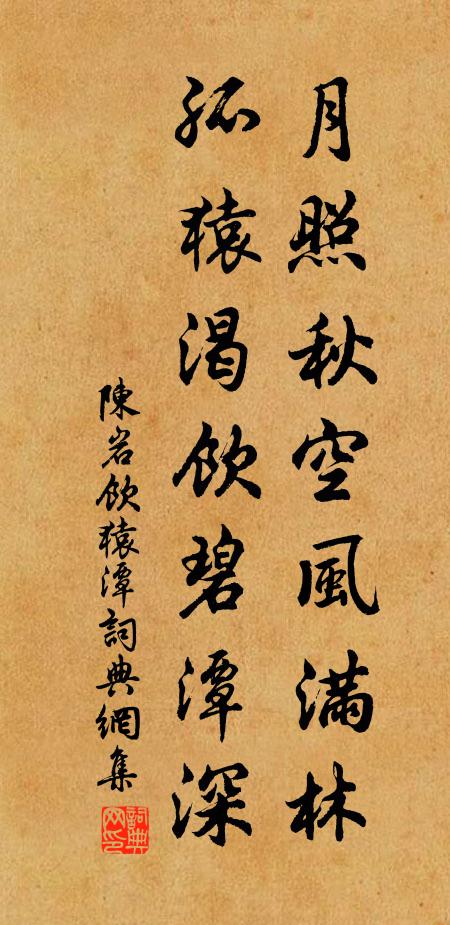 月照秋空風滿林
孤猿渴飲碧潭深
陳岩飲猿潭詞典網集
詞典网印